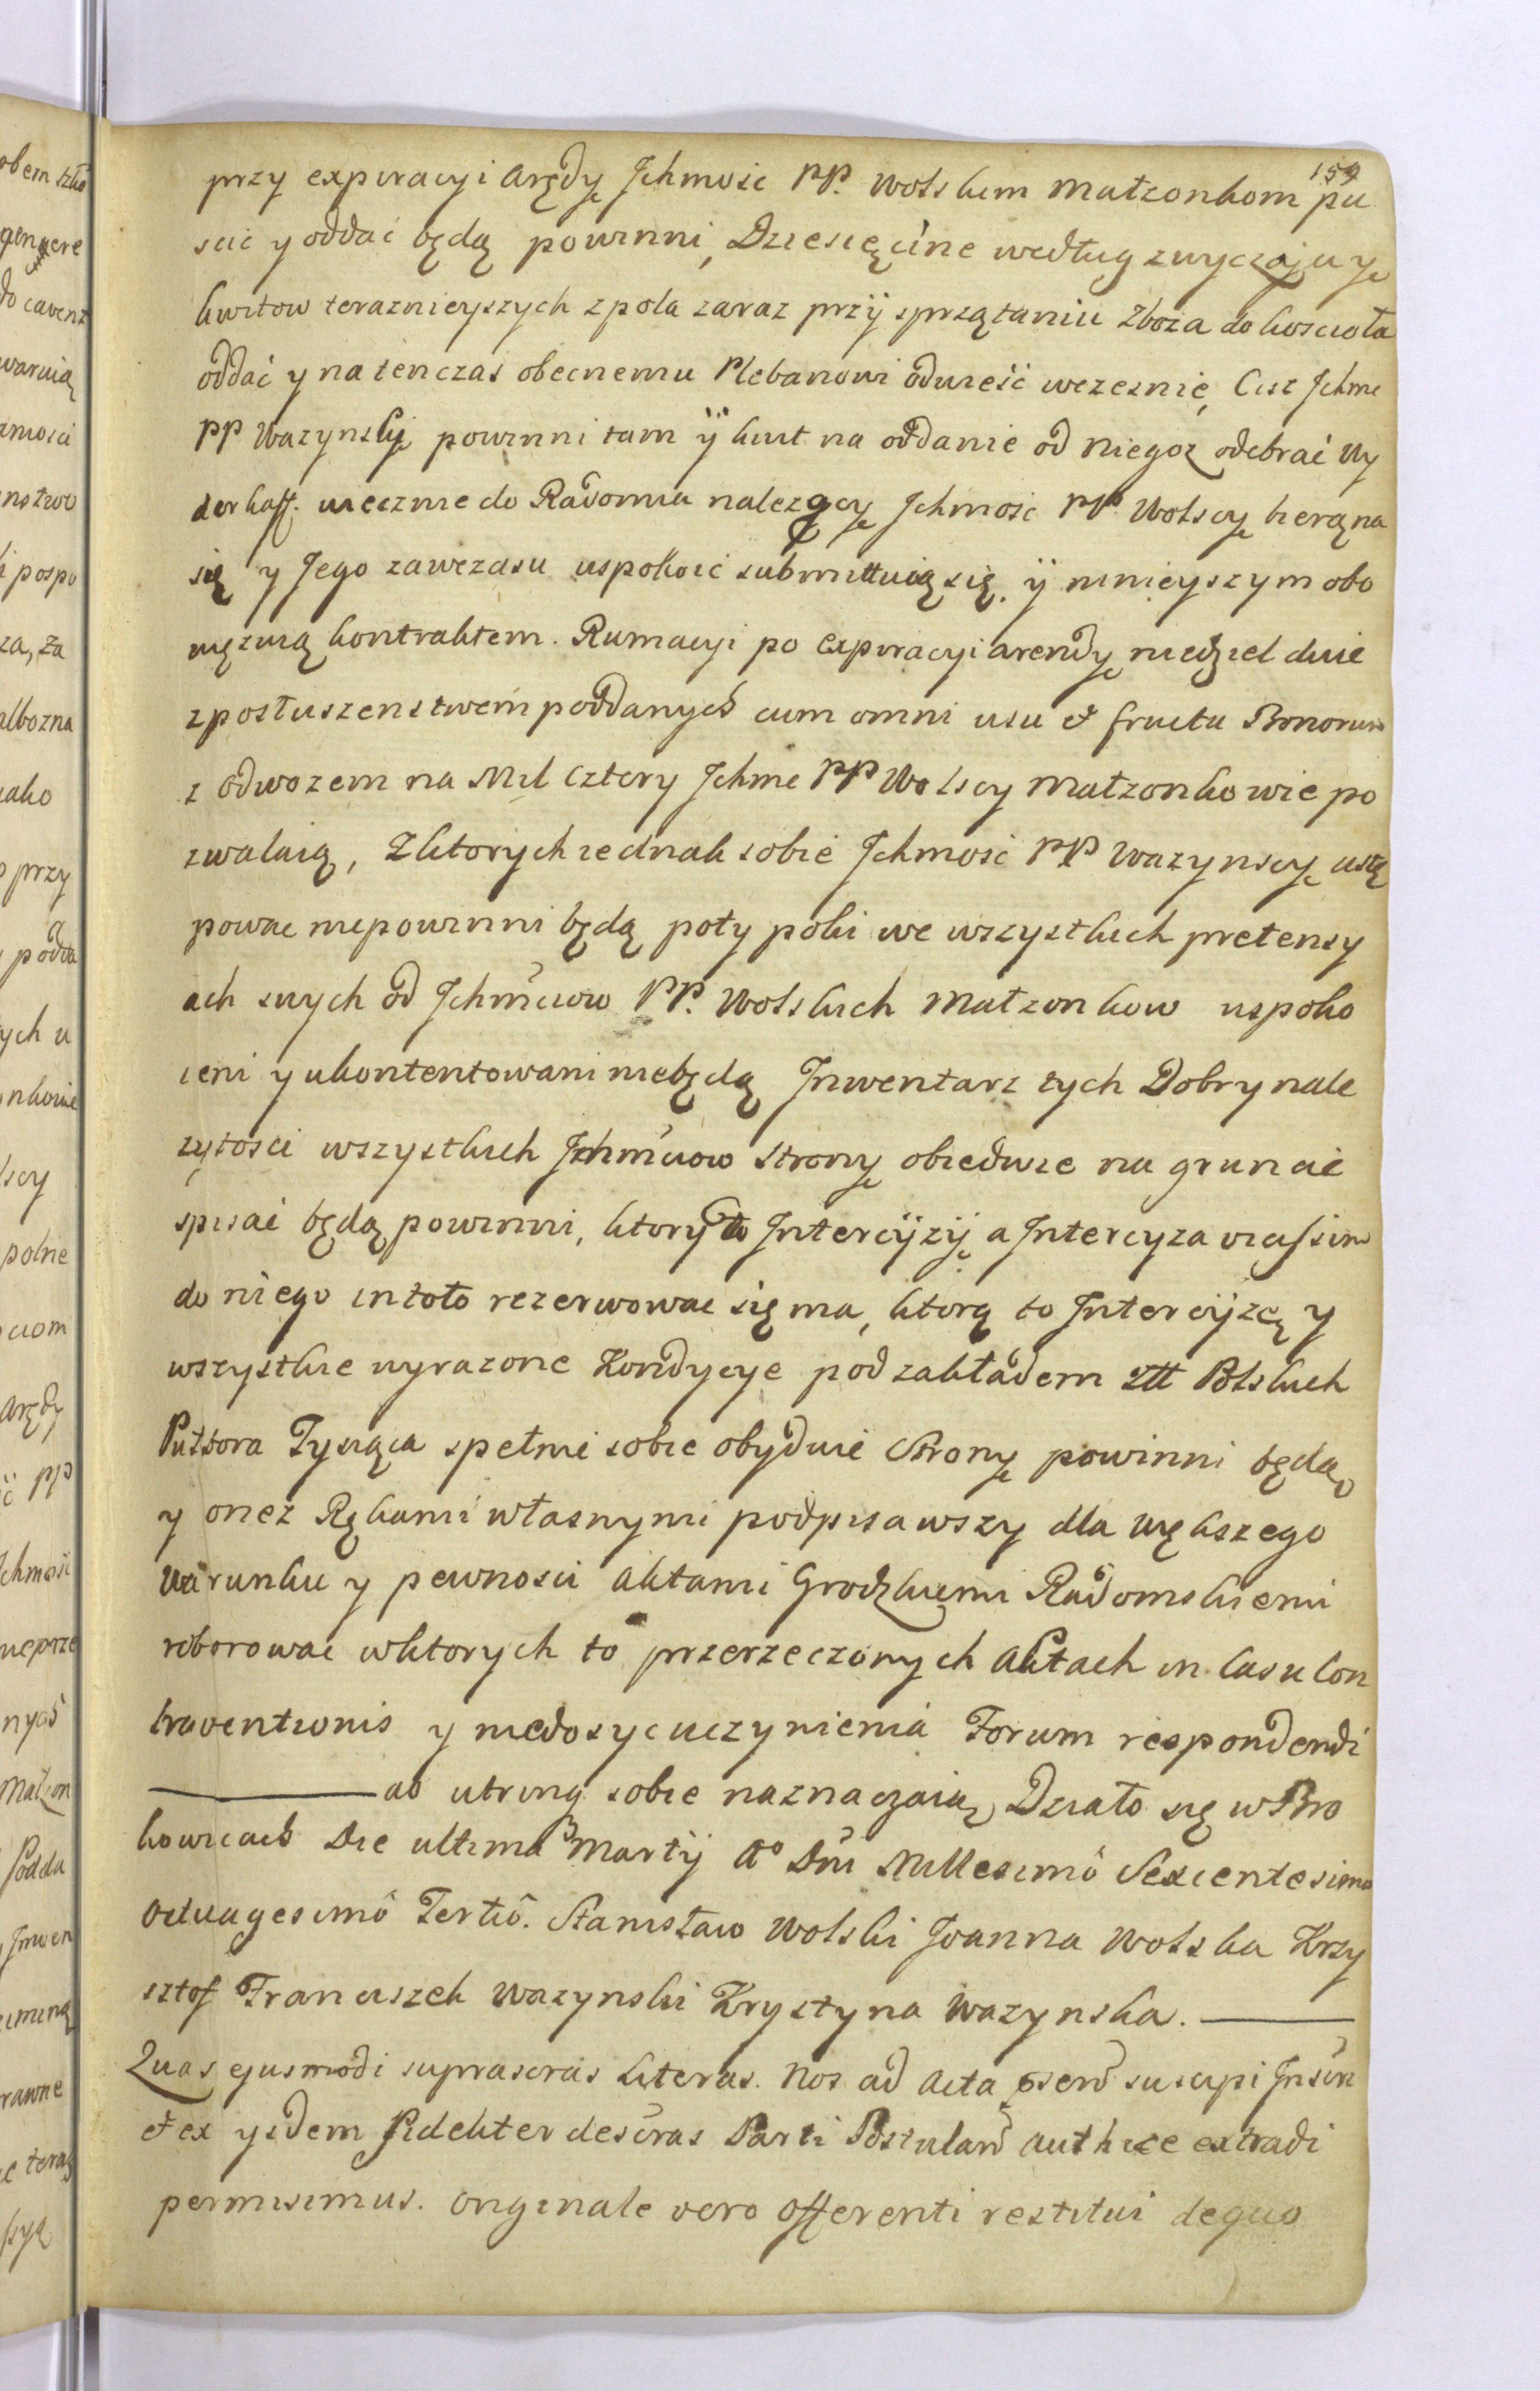 159
przy expiracyi arędy Jchmość PP. Wolskim Małzonkom pu
scic y oddać będą powinni, Dziesięcine według zwyczaju y
kwitow teraznieyszych z pola zaraz przÿ sprzątaniu Zboza do koscioła
oddać y na tenczas obecnemu Plebanowi odwieść wczesnie, Cisz Jchme
PP Wazynsky powinni tam ÿ kwit na oddanie od niegoz odebrać Wy
derkaff. wiecznie do Radomia nalezący Jchmość PP Wolscy bierą na
się y Jego zawczasu uspokoic submittuią się. ÿ ninieyszym obo
węzuią kontraktem. Rumacyi po Expiracyi arendy niedziel dwie
z posłuszenstwem poddanych cum omni usu et fructu Bonorum
z odwozem na Mil cztery Jchme PP Wolscy Małzonkowie po
zwalaią, Z ktorych iednak sobie Jchmość PP Wazynscy ustę
powac niepowinni będą poty poki we wszystkich pretensy
ach swych od Jchmciow PP. Wolskich Małzonkow uspoko
ieni y ukontentowani niebędą Jnwentarz tych Dobr y nale
zytosci wszystkich Jchmciow Strony obiedwie na gruncie
spisać będą powinni, ktory to Jntercÿzÿ a Jntercyza vicissim
do niego in toto rezerwowac się ma, ktorą to Jntercÿzę y
wszystkie wyrazone Kondycye pod zakładem złł Polskich
Pułtora Tysiąca spełnic sobie obydwie Strony powinni będą,
y onez Rękami własnymi podpisawszy dla większego
warunku y pewnosci Aktami Grodzkiemi Radomskiemi
roborowac w ktorych to przerzeczonych Aktach in Casu Con
traventionis y niedosyc uczynienia Forum respondendi
ab utrinq sobie naznaczaią, Działo się w Bro
kowicach Die ultima Martij Aº Dni Millesimô Sexcentesimo
Octuagesimô Tertiô. Stanisław Wolski Joanna Wolska Krzy
sztof Franciszek Wazynski Krystyna Wazynska.
Quas ejusmodi suprascras Literas. Nos ad Acta pserd suscipi Jnscri
et ex ysdem Fideliter descras Parti Postuland authce extradi
permisimus. Originale vero Offerenti restitui de quo